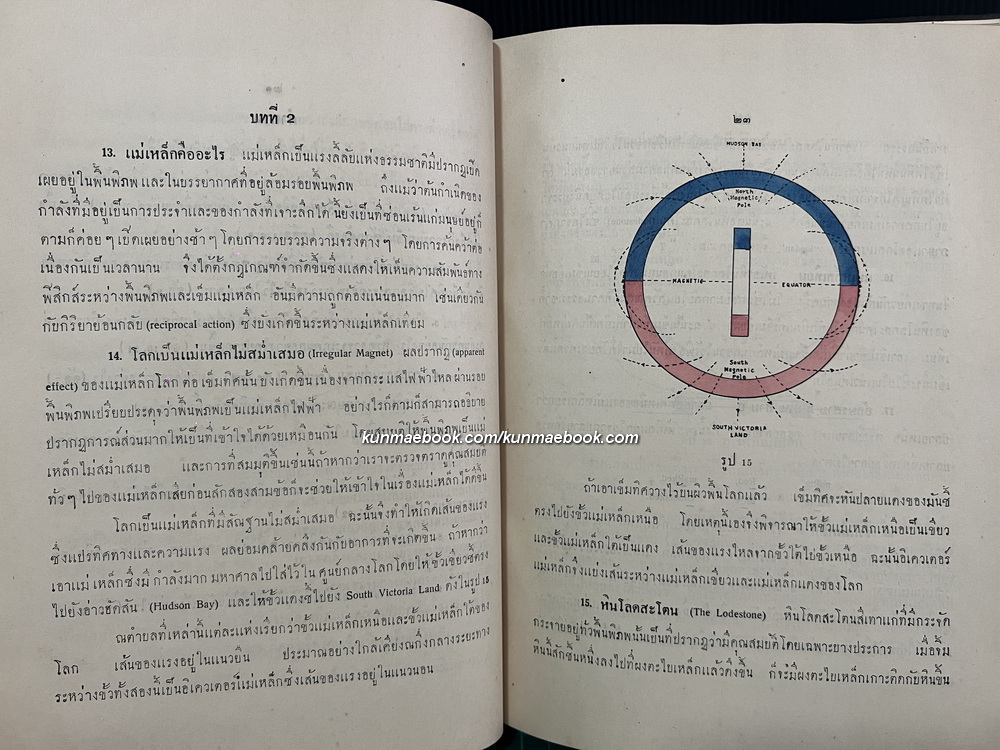 บทที่ 2
13. แม่เหล็กคืออะไร แม่เหล็กเป็นแรงลี้ลับแห่งธรรมชาติมีปรากฏเปิด
เผยอยู่ในพื้นพิภพ และในบรรยากาศที่อยู่ล้อมรอบพื้นพิภพ ถึงแม้ว่าต้นกำเนิดของ
กำลังที่มีอยู่เป็นการประจำและของกำลังที่เจาะลึกได้ นี้ยังเป็นที่ซ่อนเร้นแก่มนุษย์อยู่ก็
ตามก็ค่อย ๆ เปิดเผยอย่างช้า ๆ โดยการรวบรวมความจริงต่าง ๆ โดยการค้นคว้าต่อ
เนื่องกันเป็นเวลานาน จึงได้ตั้งกฎเกณฑ์จำกัดขึ้นซึ่งแสดงให้เห็นความสัมพันธ์ทาง
ฟิสิกส์ระหว่างพื้นพิภพและเข็มแม่เหล็ก อันมีความถูกต้องแน่นอนมาก เช่นเดียวกัน
กับกิริยาย้อนกลับ (reciprocal action) ซึ่งยังเกิดขึ้นระหว่างแม่เหล็กเทียม
14. โลกเป็นแม่เหล็กไม่สม่ำเสมอ (Irregular Magnet) ผลปรากฏ (apparent
effect) ของแม่เหล็กโลก ต่อ เข็มทิศนั้น บังเกิดขึ้น เนื่องจากกระแสไฟฟ้าไหล ผ่านรอบ
พื้นพิภพเปรียบประดุจว่าพื้นพิภพเป็นแม่เหล็กไฟฟ้า อย่างไรก็ตามก็สามารถอธิบาย
ปรากฏการณ์ส่วนมากให้เป็นที่เข้าใจได้ด้วยเหมือนกัน โดยสมมติให้พื้นพิภพเป็นแม่
เหล็กไม่สม่ำเสมอ และการที่สมมุติขึ้นเช่นนี้ถ้าหากว่าเราจะตรวจตราดูคุณสมบัติ
ทั่ว ๆ ไปของแม่เหล็กเสียก่อนสักสองสามข้อก็จะช่วยให้เข้าใจในเรื่องแม่เหล็กได้ดีขึ้น
โลกเป็นแม่เหล็กที่มีสัณฐานไม่สม่ำเสมอ ฉะนั้นจึงทำให้เกิดเส้นของแรง
ซึ่งแปรทิศทางและความแรง ผลย่อมคล้ายคลึงกันกับอาการที่จะเกิดขึ้น ถ้าหากว่า
เอาแม่เหล็กซึ่งมี กำลังมาก มหาศาลไปใส่ไว้ใน ศูนย์กลางโลกโดยให้ขั้วเขียวชี้ตรง
ไปยังอ่าวฮัดสัน (Hudson Bay) และให้ขั้วแดงชี้ไปยัง South Victoria Land ดังในรูป 15
ณตำบลที่เหล่านี้แต่ละแห่งเรียกว่าขั้วแม่เหล็กเหนือและขั้วแม่เหล็กใต้ของ
โลก เส้นของแรงอยู่ในแนวยืน ประมาณอย่างใกล้เคียงณกึ่งกลางระยะทาง
ระหว่างขั้วทั้งสองนี้เป็นอิเควเตอร์แม่เหล็กซึ่งเส้นของแรงอยู่ในแนวนอน
๒๓
HUDSON BAY
North
Magnetic
Pole
MAGNETIC EQUATOR
South
Magnetic
Pole
SOUTH VICTORIA
LAND
kunmaebook.com/kunmaebook.com
รูป 15
ถ้าเอาเข็มทิศวางไว้บนผิวพื้นโลกแล้ว เข็มทิศจะหันปลายแดงของมันชี้
ตรงไปยังขั้วแม่เหล็กเหนือ โดยเหตุนี้เองจึงพิจารณาให้ขั้วแม่เหล็กเหนือเป็นเขียว
และขั้วแม่เหล็กใต้เป็นแดง เส้นของแรงไหลจากขั้วใต้ไปขั้วเหนือ ฉะนั้นอิเควเตอร์
แม่เหล็กจึงแบ่งเส้นระหว่างแม่เหล็กเขียวและแม่เหล็กแดงของโลก
15. หินโลดสะโตน (The Lodestone) หินโลดสะโตนสีเทาแก่ที่มีกระจัด
กระจายอยู่ทั่วพื้นพิภพนั้นเป็นที่ปรากฏว่ามีคุณสมบัติโดยเฉพาะบางประการ เมื่อจิ้ม
หินนี้สักชิ้นหนึ่งลงไปที่ผงตะไบเหล็กแล้วดึงขึ้น ก็จะมีผงตะไบเหล็กเกาะติดกับหินขึ้น